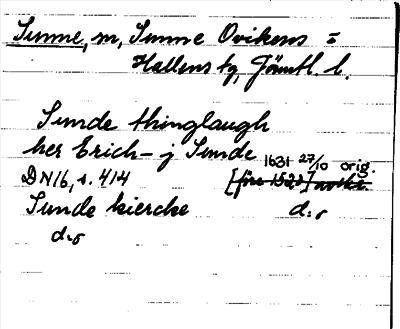 Sunne, m, Sunne Ovikens =
Hallens tg, Jämtl. l.
Sunde thinglaugh
her Erich - j Sunde 1631 27/10 orig.
DN16, s. 414 [före 1528]
Sunde kiercke d:o
d:o